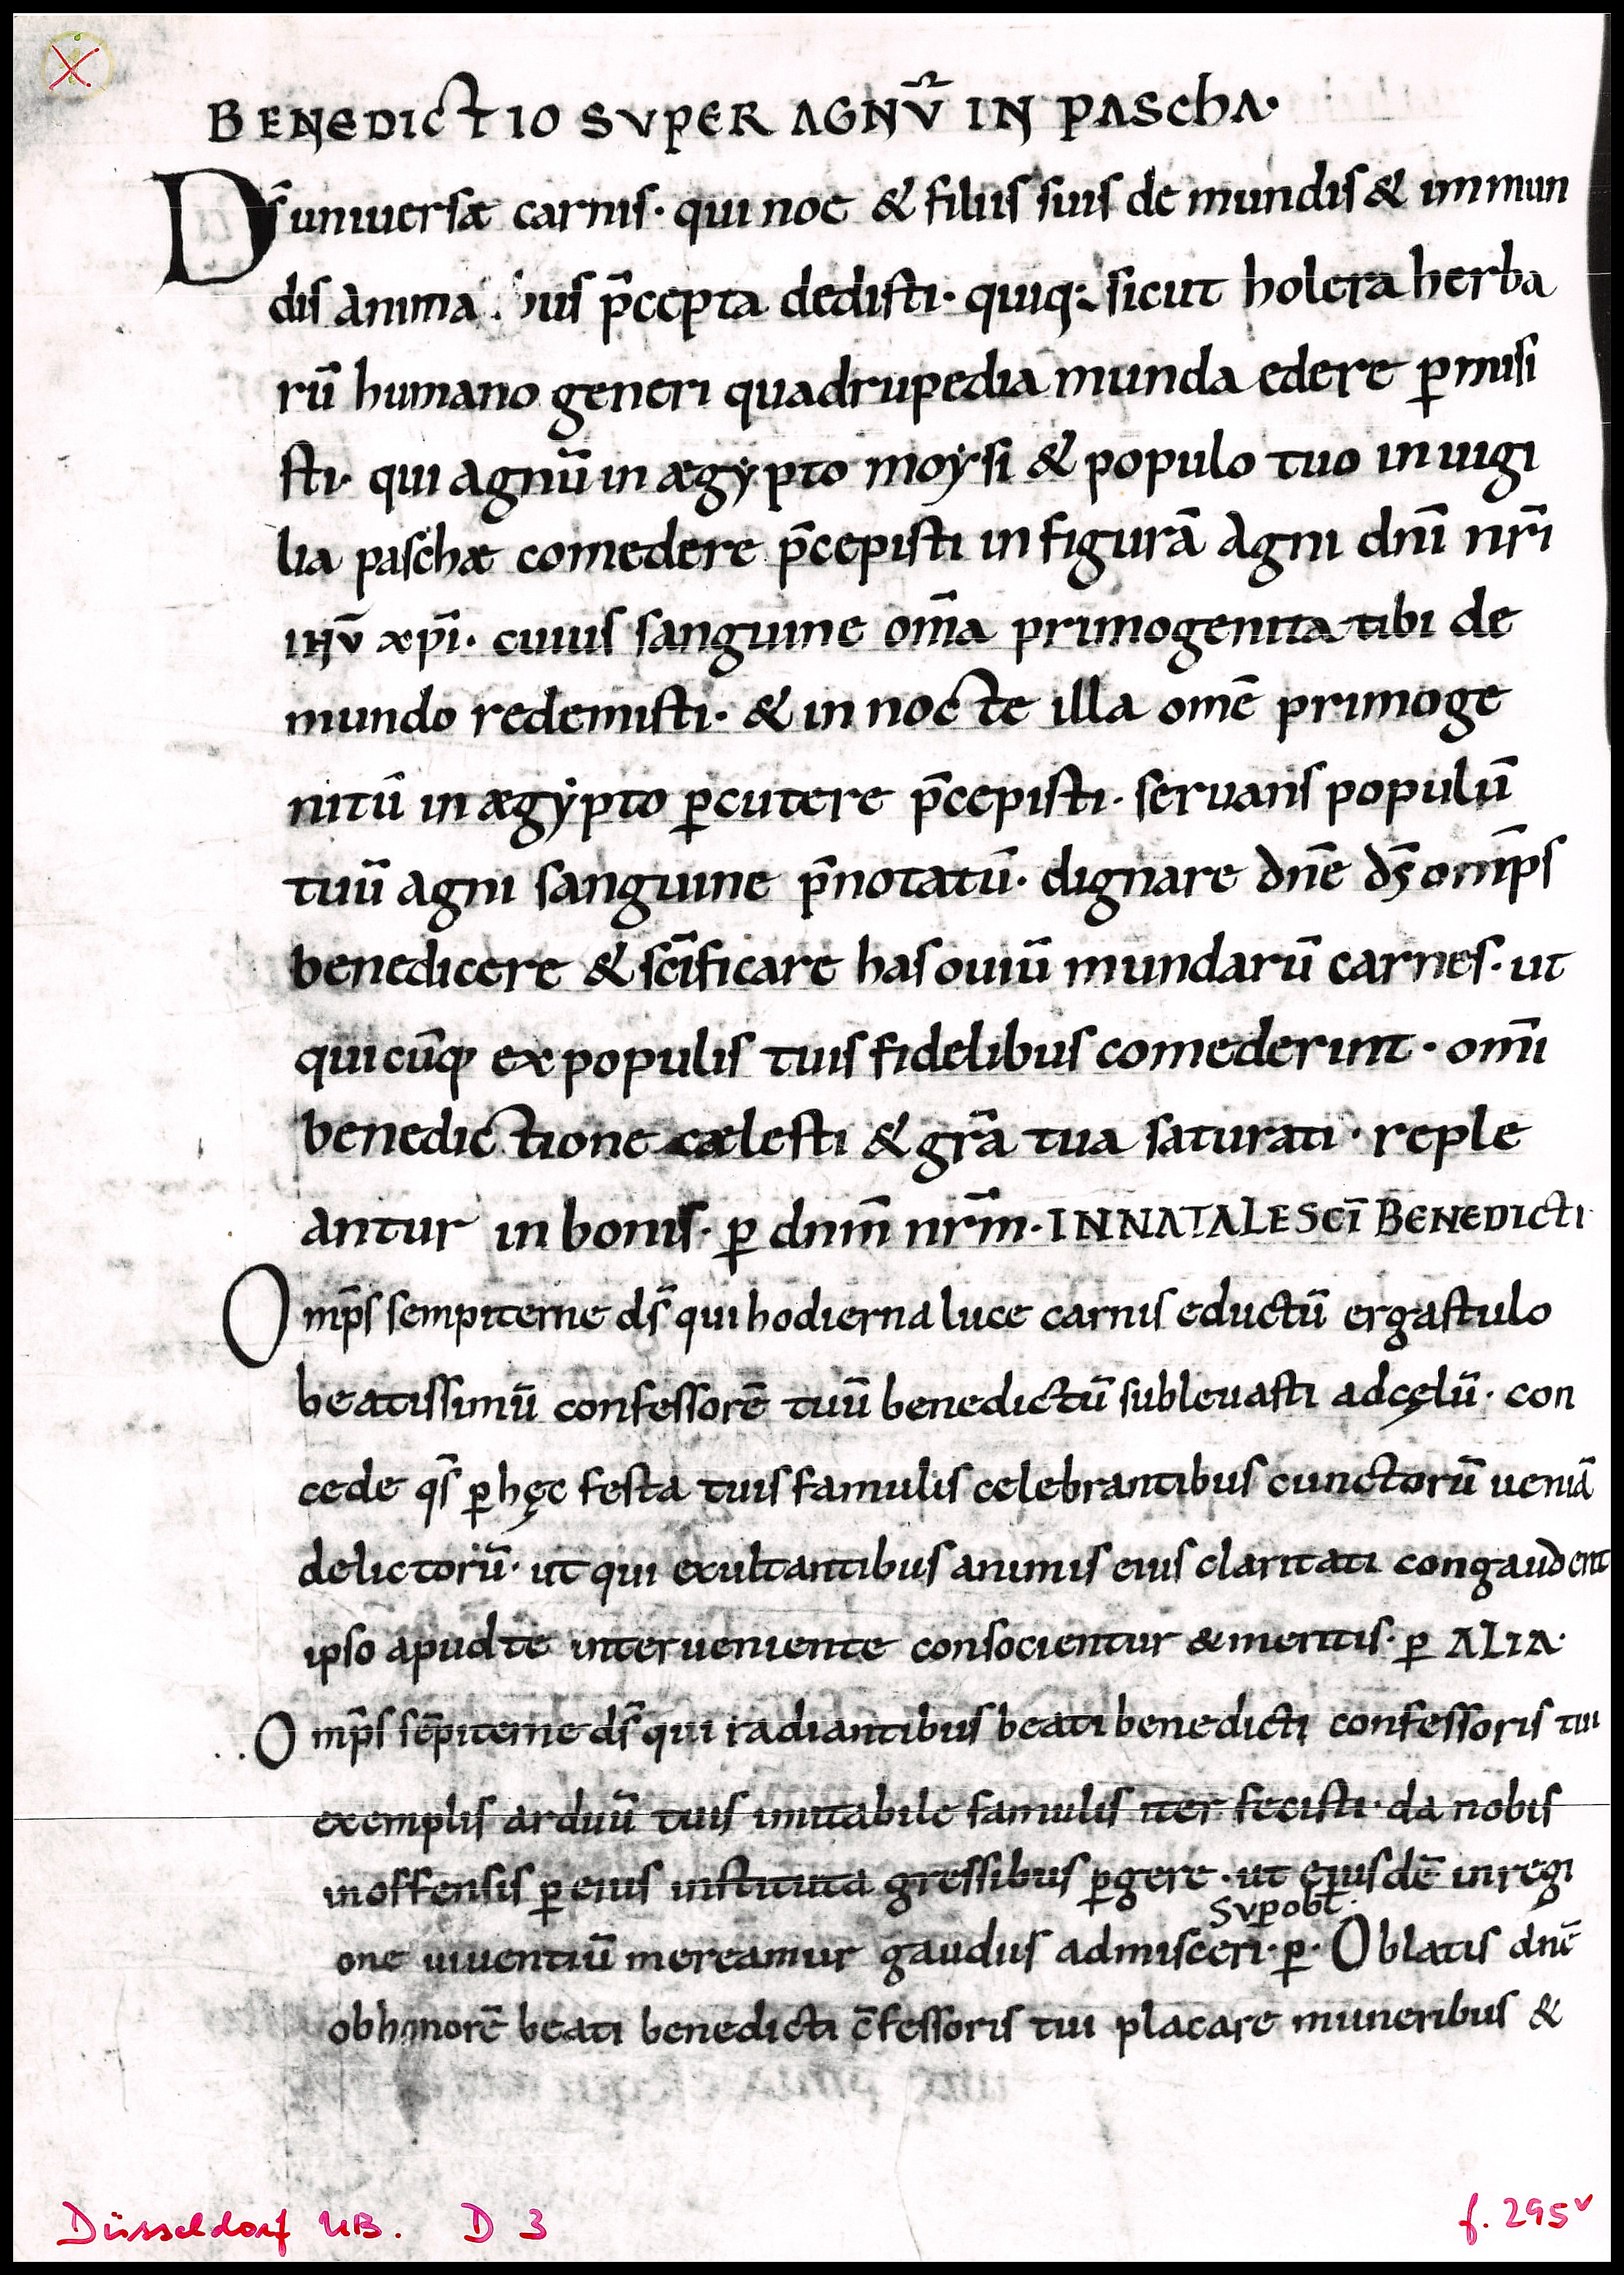 BENEDICTIO SVPER AGNV̄ IN PASCHA·
Ds̄ uniuersæ carnis· qui noe & filiis suis de mundis & inmun
dis anima p̄cepta dedisti· quiq: sicut holera herba
rū humano generi quadrupedia munda edere ꝑmisi
sti· qui agnū in ægẏpto moẏsi & populo tuo in uigi
lia paschæ comedere p̄cepisti in figurā agni dnī nrī
ihū xpī· cuius sanguine om̄a primogenita tibi de
mundo redemisti· & in nocte illa omē primoge
nitū in ægẏpto ꝑcutere p̄cepisti· seruans populū
tuū agni sanguine p̄notatū· dignare dnē ds̄ omp̄s
benedicere & scīficare has ouiū mundarū carnes· ut
quicūq; ex populis tuis fidelibus comederint· omī
benedictione cælesti & grā tua saturati· reple
antur in bonis· ꝑ dnm̄ nrm̄· IN NATALE SCI̅ BENEDICTI
Omp̄s sempiterne ds̄ qui hodierna luce carnis eductū ergastulo
beatissimū confessorē tuū benedictū subleuasti ad cęlū· con
cede qs̄ ꝑ hęc festa tuis famulis celebrantibus cunctorū ueniā
delictorū· ut qui exultantibus animis eius claritati congaudent
ipso apud te interueniente consocientur & meritis· ꝑ ALIA·
..Omp̄s sēpiterne ds̄ qui radiantibus beati benedicti confessoris tui
exemplis arduū tuis imitabile famulis iter fecisti· da nobis
inoffensis ꝑ eius instituta gressibus ꝑgere· ut eiusdē in regi
Suꝑ obl̄·
one uiuentiū mereamur gaudiis admisceri· ꝑ· Oblatis dnē
ob honorē beati benedicti c̄fessoris tui placare muneribus &
Düsseldorf UB. D 3
f. 295v